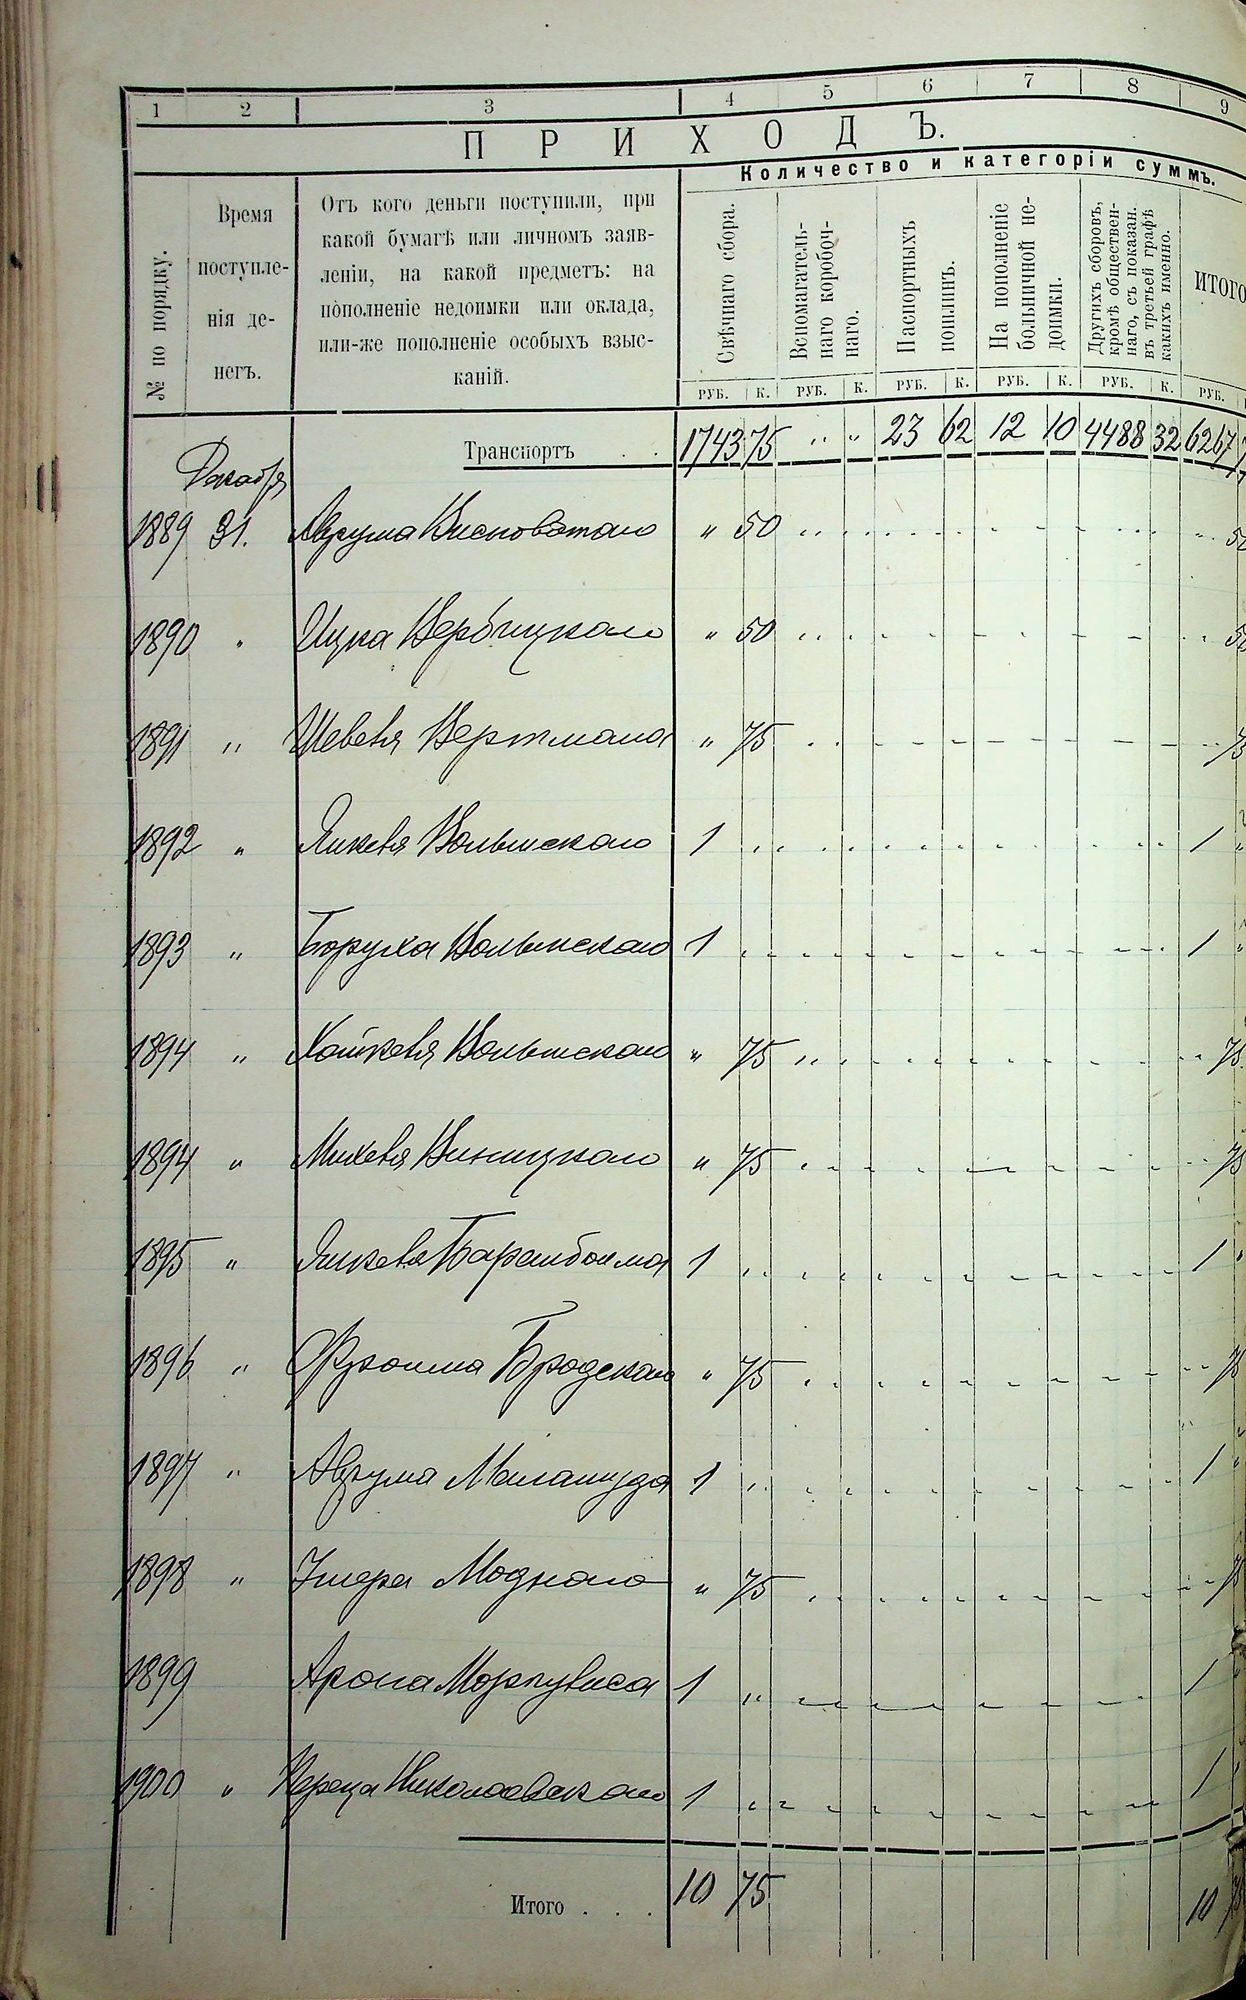 1 2 3 4 5 6 7 8 9
ПРИХОДЪ.
Количество и категоріи суммъ.
№ по порядку.
Время
поступле-
нія де-
негъ.
Отъ кого деньги поступили, при
какой бумагѣ или личномъ заяв-
леніи, на какой предметъ: на
пополненіе недоимки или оклада,
или-же пополненіе особыхъ взыс-
каній.
Свѣчнаго сбора.
Вспомагатель-
наго коробоч-
наго.
Паспортныхъ
пошлинъ.
На пополненіе
больничной не-
доимки.
Другихъ сборовъ,
кромѣ обществен-
наго, съ показан.
въ третьей графѣ
какихъ именно.
ИТОГО
РУБ. К. РУБ. К. РУБ. К. РУБ. К. РУБ. К. РУБ.
Транспортъ . . 1743 75 " " 23 62 12 10 4488 32 6267
Декабря
1889 31. Аврума Висноватаго " 50
1890 " Ицка Вербицкаго " 50
1891 " Шевеля Вертмана " 75
1892 " Янкеля Волынскаго 1 1
1893 " Боруха Волынскаго 1 1
1894 " Хаикеля Волынскаго " 75 75
1894 " Михеля Виницкаго " 75 75
1895 " Янкеля 1 1
1896 " Фроима Бродскаго " 75 75
1897 " Аврума 1 1
1898 " Умера Моднаго " 75 75
1899 Арона 1 1
1900 " Переца Николаевскаго 1 1
Итого . . . 10 75 10 75